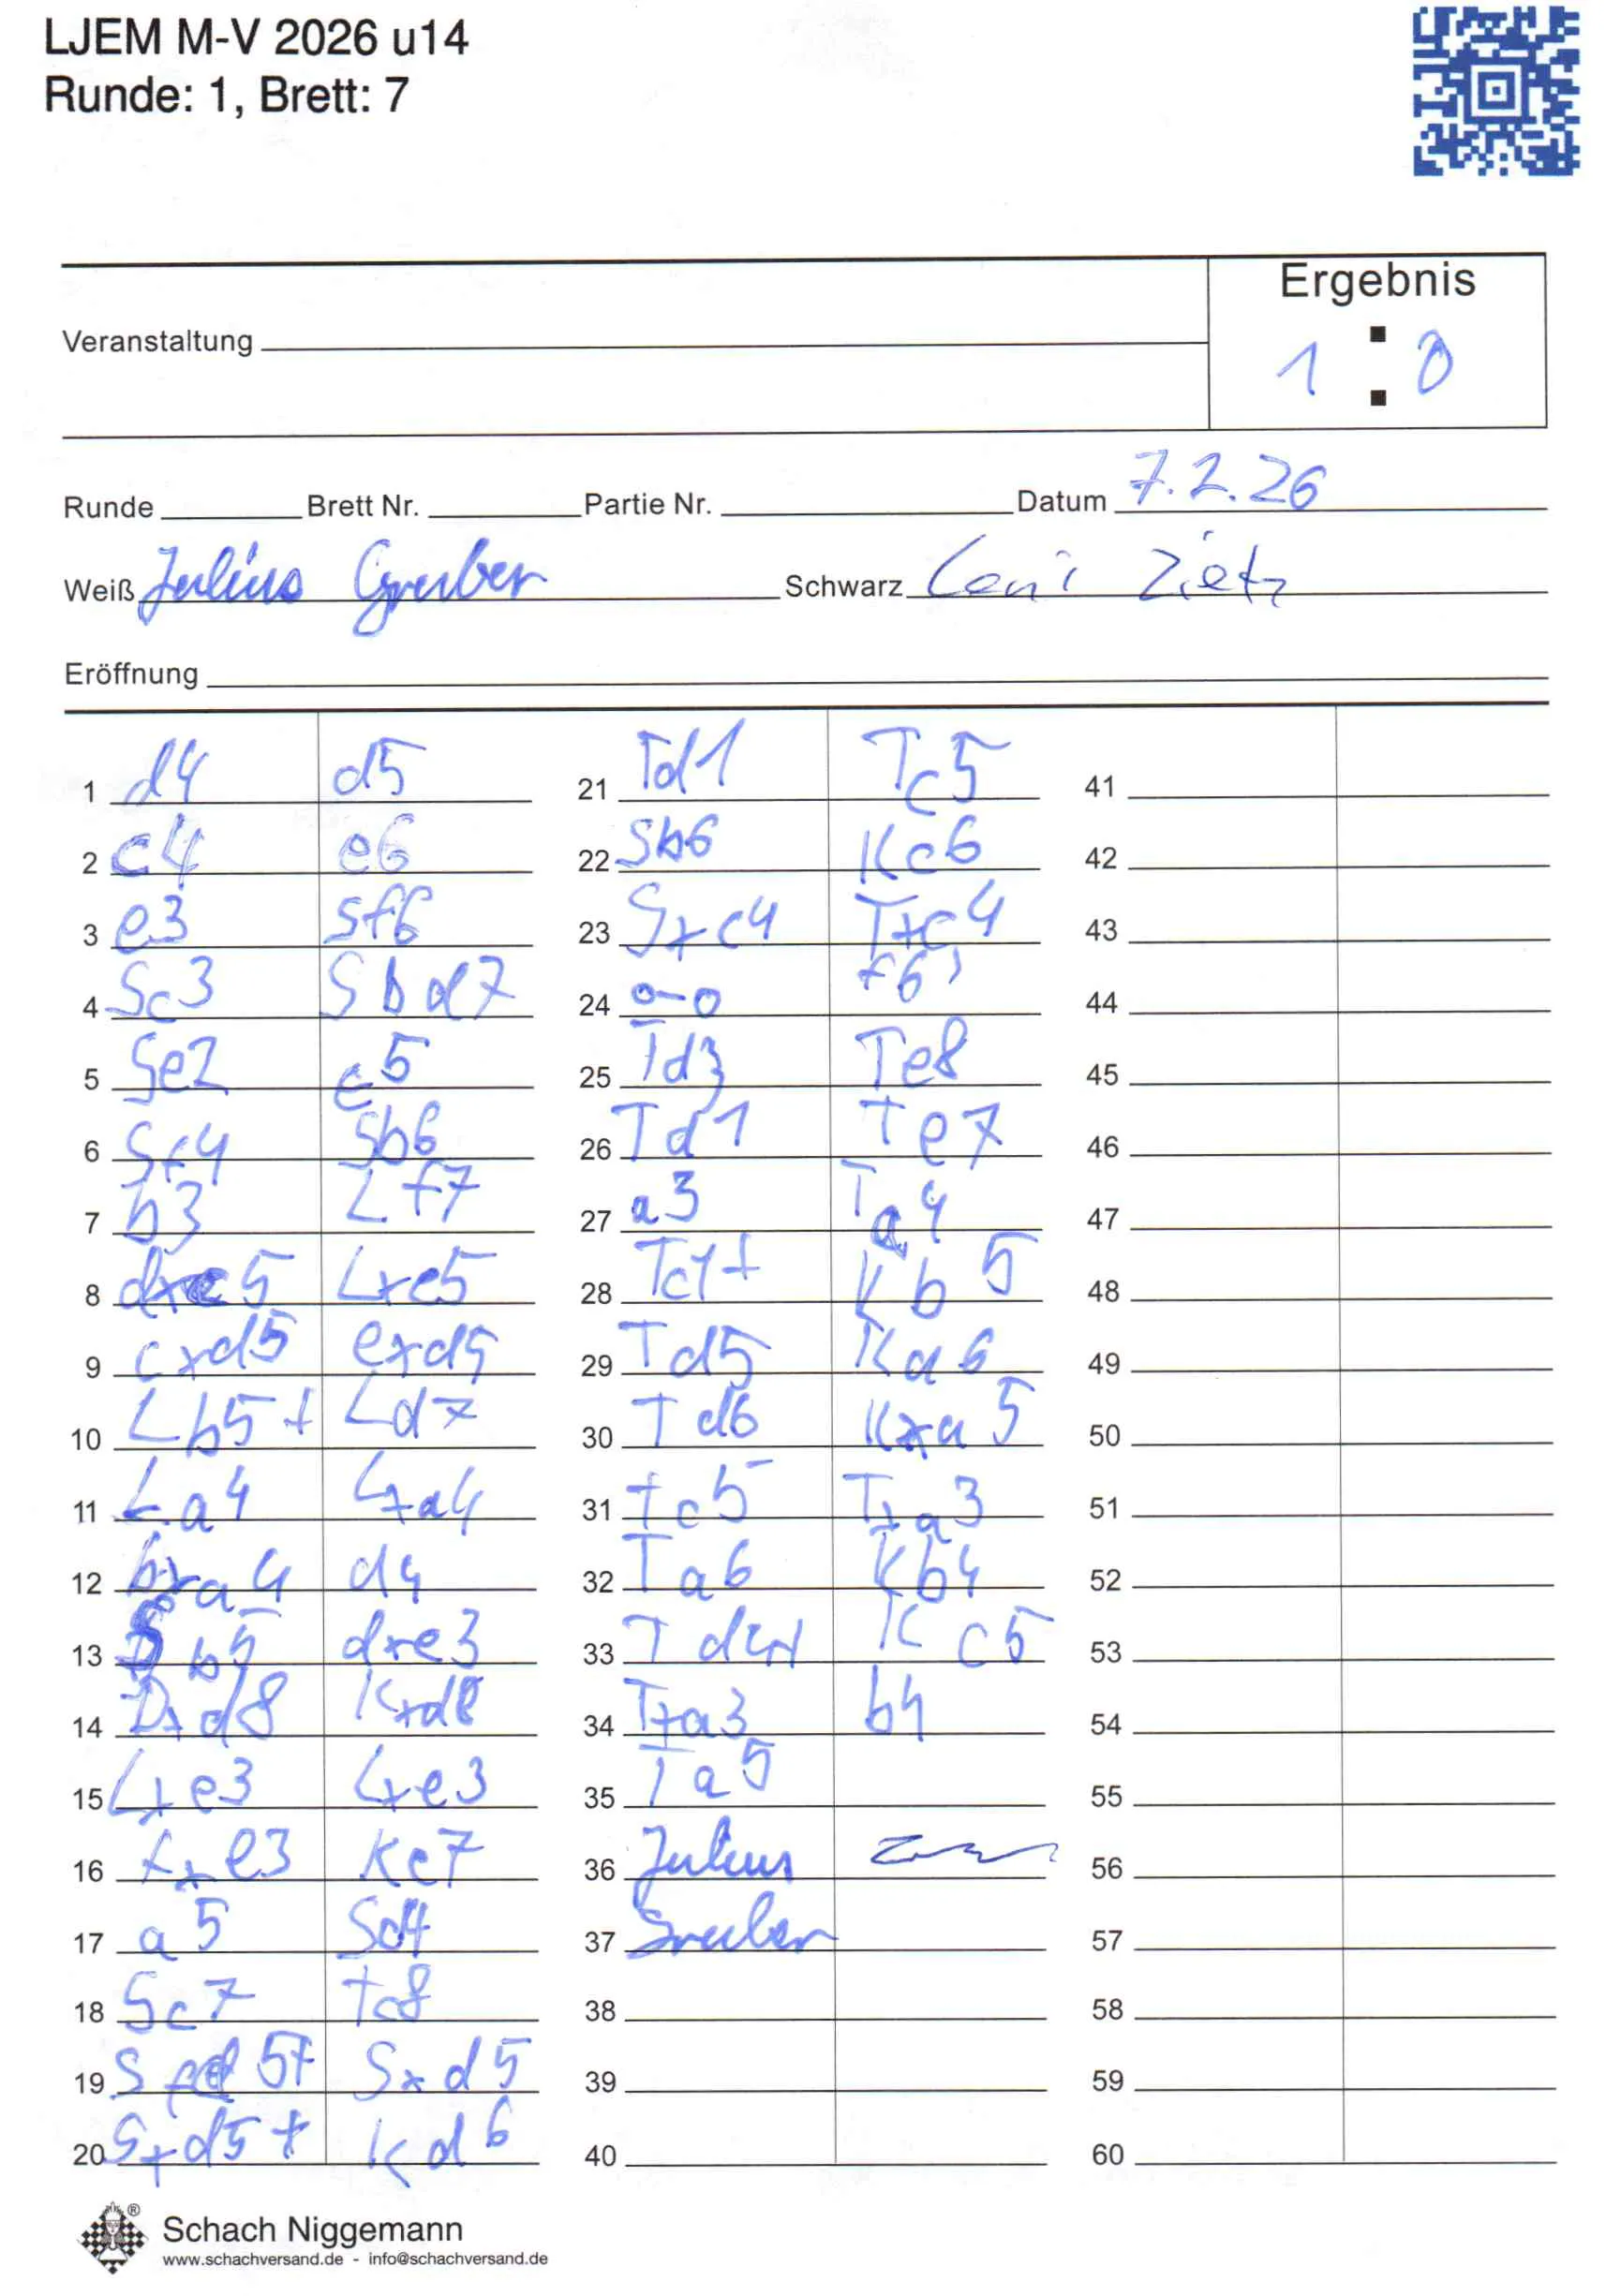 LJEM M-V 2026 u14
Runde: 1, Brett: 7
Ergebnis
1 : 0
Veranstaltung
Runde Brett Nr. Partie Nr. Datum 7.2.26
Weiß Julius Gruber Schwarz Leni Zietz
Eröffnung
1 d4 d5
2 c4 e6
3 e3 Sf6
4 Sc3 Sbd7
5 Se2 c5
6 Sf4 Sb6
7 b3 Lf7
8 dxc5 Lxc5
9 cxd5 exd5
10 Lb5+ Ld7
11 La4 Lxa4
12 bxa4 d4
13 Sb5 dxe3
14 Dxd8 Kxd8
15 Lxe3 Lxe3
16 fxe3 Ke7
17 a5 Sc4
18 Sc7 Tc8
19 Sfd5+ Sxd5
20 Sxd5+ Kd6
21 Td1 Tc5
22 Sb6 Kc6
23 Sxc4 Txc4
24 0-0 f6
25 Td3 Te8
26 Td1 Te7
27 a3 Ta4
28 Tc1+ Kb5
29 Td5 Ka6
30 Td6 Kxa5
31 Tc5 Txa3
32 Ta6 Kb4
33 Kc5
34 Txa3 b4
35 Ta5
36 Julius
37 Gruber
38
39
40
41
42
43
44
45
46
47
48
49
50
51
52
53
54
55
56
57
58
59
60
Schach Niggemann
www.schachversand.de - info@schachversand.de